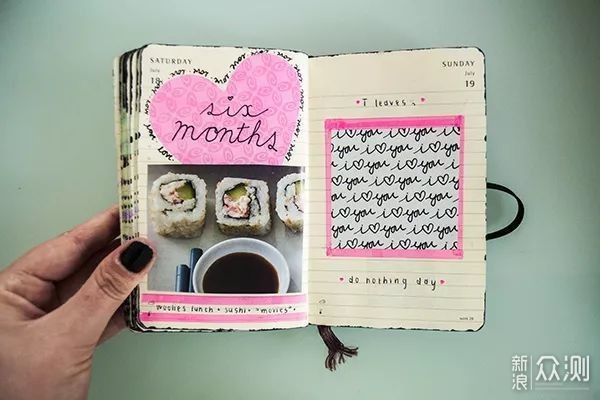 SATURDAY
July
18
six
months
woolies lunch + sushi + "movies"
SUNDAY
July
19
T leaves..
i ♡ you i ♡ you
you i ♡ you i ♡
i ♡ you i ♡ you
you i ♡ you i ♡
i ♡ you i ♡ you
♡ you i ♡ you
i ♡ you i ♡ you
do nothing day
week 29
新浪
众测